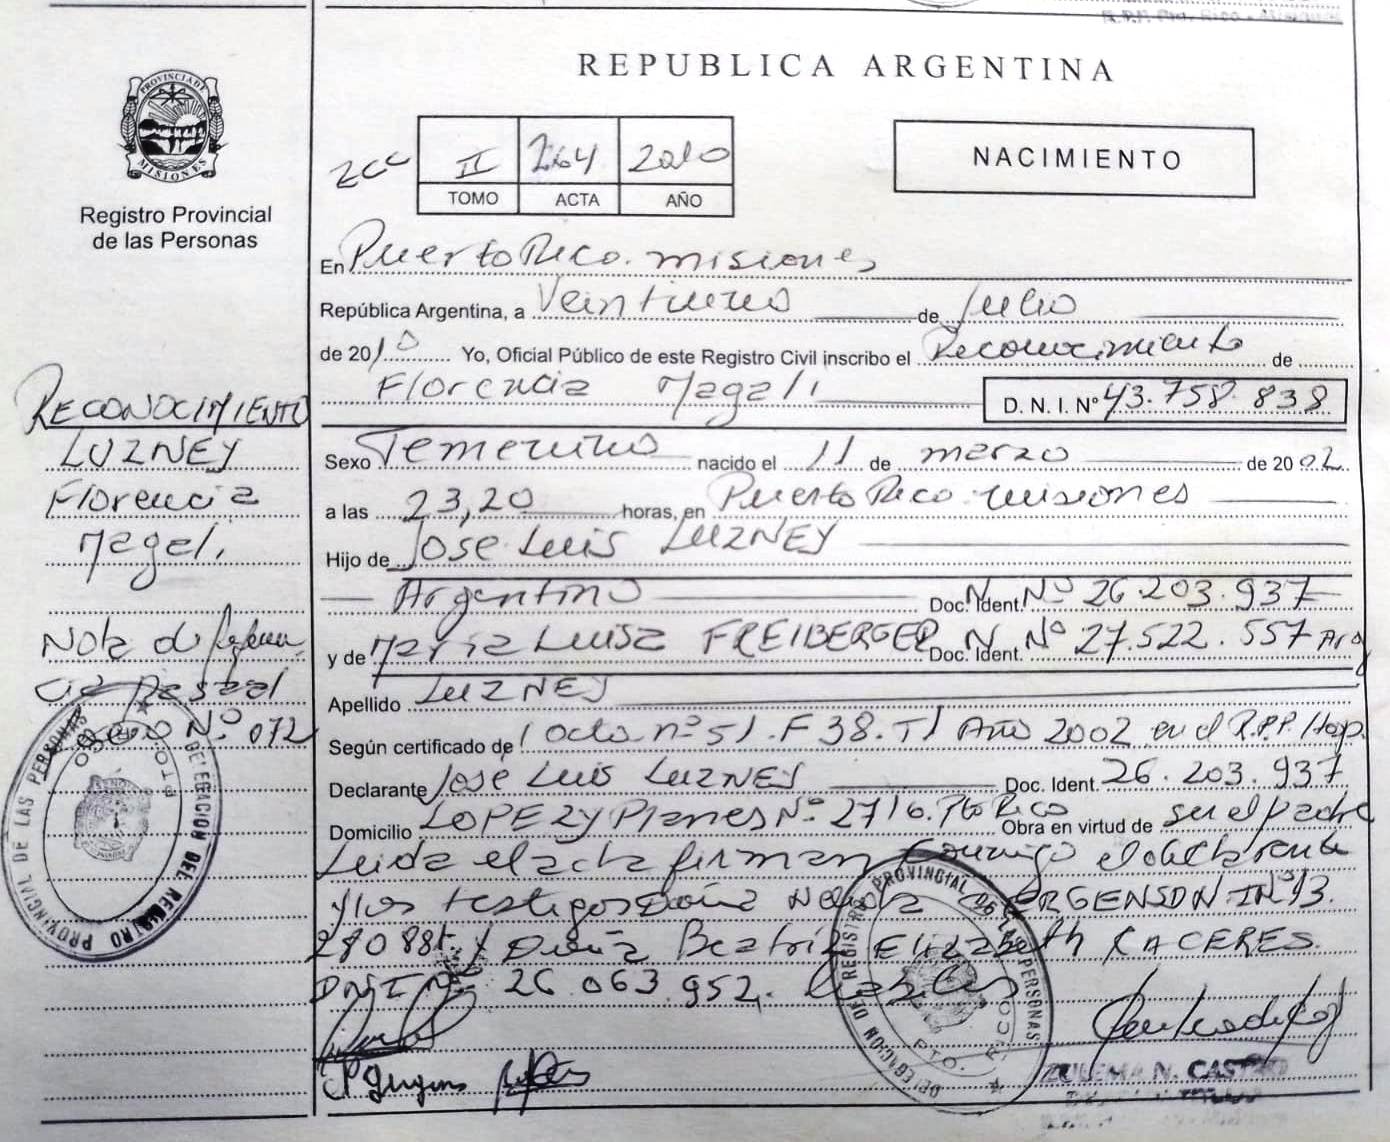 PROVINCIA DE
MISIONES
Registro Provincial
de las Personas
RECONOCIMIENTO
LUZNEY
Florencia
Magali
Nota de
N.º 072
DELEGACION DEL REGISTRO PROVINCIAL DE LAS PERSONAS
PTO. RICO
REPUBLICA ARGENTINA
II 264 2010
TOMO ACTA AÑO
NACIMIENTO
En Puerto Rico. misiones
República Argentina, a Veintiuno de Julio
de 2010 Yo, Oficial Público de este Registro Civil inscribo el Reconocimiento de
Florencia Magali D. N. I. Nº 43.758.838
Sexo Femenino nacido el 11 de marzo de 2002
a las 23,20 horas, en Puerto Rico misiones
Hijo de Jose Luis LUZNEY
Argentino Doc. Ident. Nº 26.203.937
y de Maria Luisa FREIBERGER Doc. Ident. Nº 27.522.557 Arg
Apellido LUZNEY
Según certificado de acta nº 51. F 38. T1 Año 2002 en el R.P.P. Hosp.
Declarante José Luis LUZNEY Doc. Ident. 26.203.937
Domicilio LOPEZ y Planes Nº 2716. Pto Rico Obra en virtud de ser el padre
Leida el acta firman conmigo el declarante
y los testigos Doña ARGENSON
y Doña Beatriz Elizabeth CACERES.
DNI Nº 26.063.952.
DELEGACION DE REGISTRO PROVINCIAL DE LAS PERSONAS
PTO. RICO
ZULEMA N. CASTRO